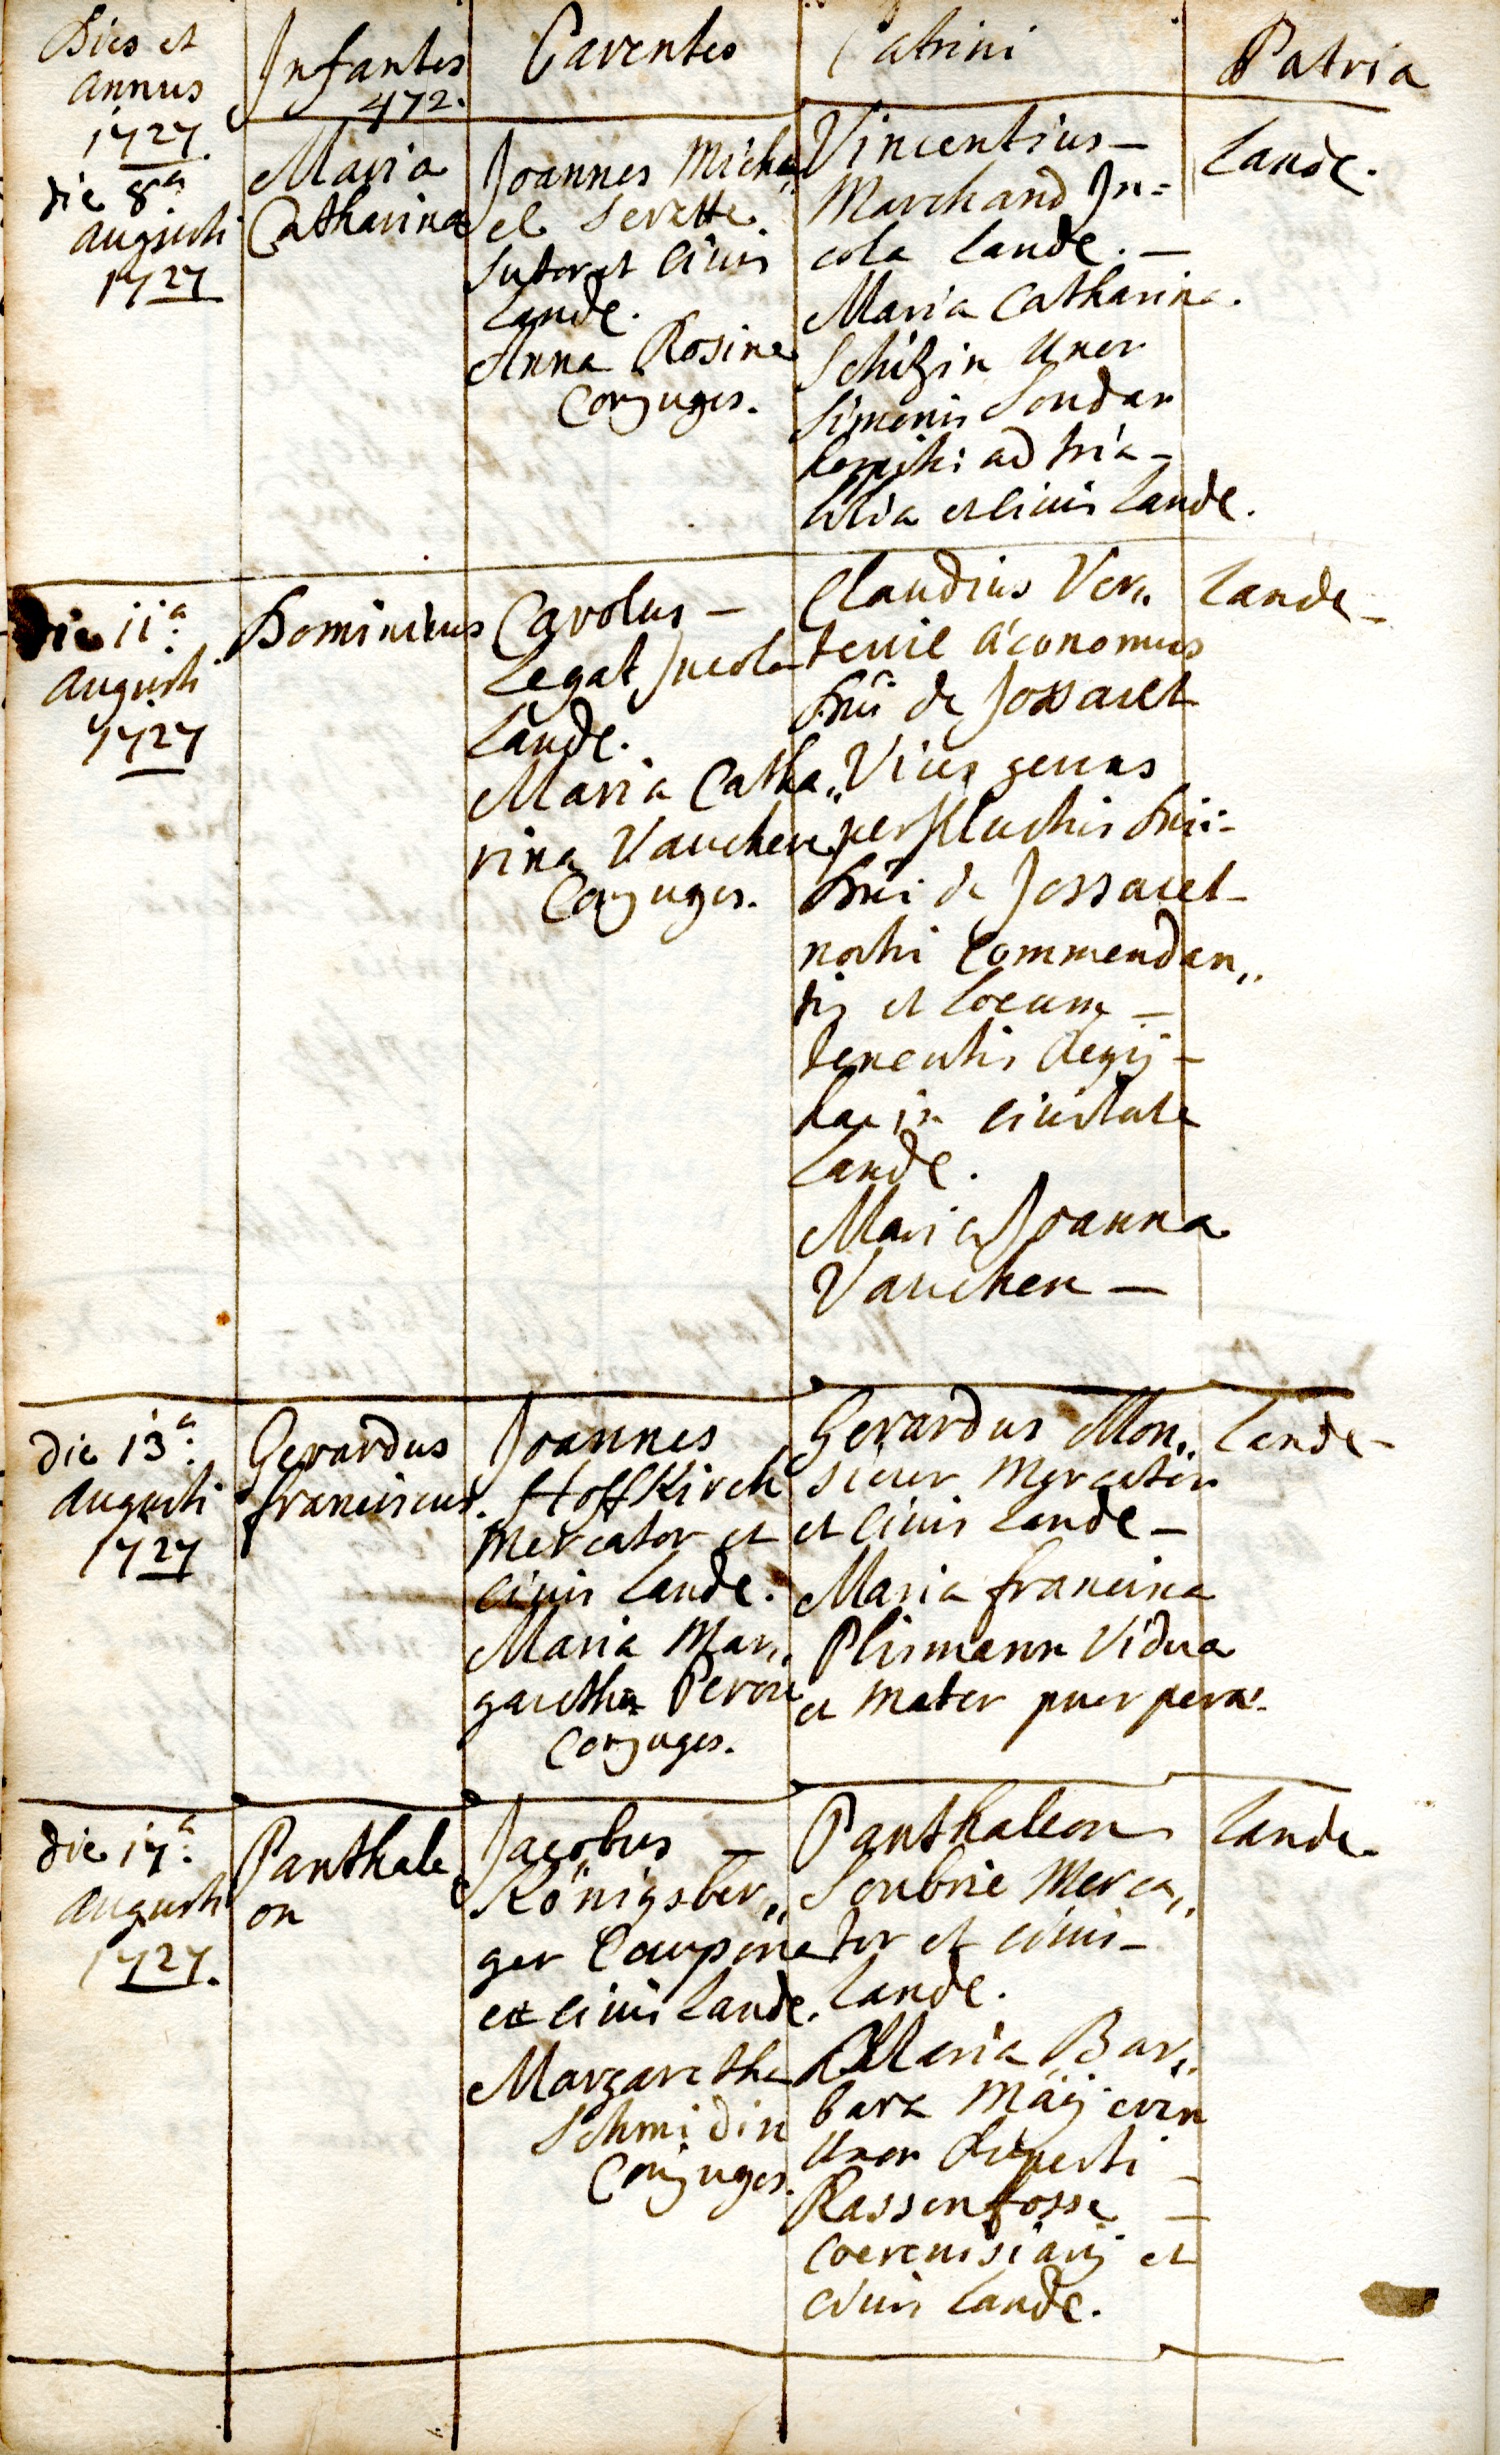 Dies et
annus
1727
Infantes
472.
Parentes
Patrini
Patria
die 8a
augusti
1727
Maria
Catharina
Joannes Micha„
el Serette
sutor et Civis
Landã.
Anna Rosine
Conjuges.
Vincentius —
Marchand In=
cola Lande. —
Maria Catharina.
Schitzin Uxor
Simonis Soudan
hospitis ad tria —
lilia et civis Lande.
Lande.
die 11a
augusti
1727
Dominicus
Carolus —
Legat Incola
Lande.
Maria Catha„
rina Vaucher
Conjuges.
Claudius Ver„
teuil aconomus
Dni de Jossaret
Vices gerens
perillustris Dni —
Dni de Jossaret —
nostri Commendan„
tis et Locum —
tenentis Regij —
hac in civitate
Lande.
Maria Joanna
Vaucher —
Lande —
die 13a
augusti
1727
Gerardus
franciscus.
Joannes
HoffKirch
Mercator et
Civis Lande.
Maria Mar„
garetha Peron
Conjuges.
Gerardus Mon„
sieur Mercator
et Civis Lande —
Maria francisca
Plismann Vidua
et Mater puerpera.
Lande —
die 14a
augusti
1727.
Panthale
on
Jacobus —
Königsber„
ger Caupone
et civis Lande.
Margaretha
Schmidin
Conjuges.
Panthaleon
Soubrie Merca„
tor et civis —
Lande.
Maria Bar„
bara Mäÿerin
Uxor Ruperti —
Rassenfosse —
Coerevisiarij et
Civis Lande.
Lande.